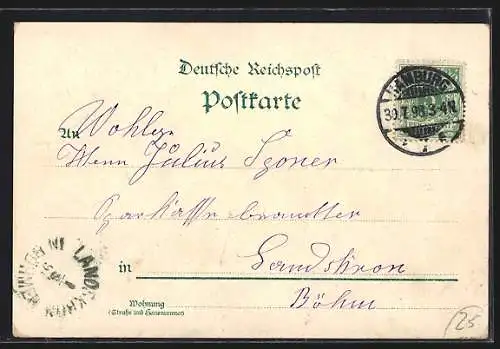 Deutsche Reichspost
Postkarte
HAMBURG
30.7.98.3-4N
An Wohlgn
Herrn Julius
Sparkasse beamter
LANDSKRON IN BÖHMEN
in Landskron
Wohnung
(Straße und Hausnummer)
Böhm
25